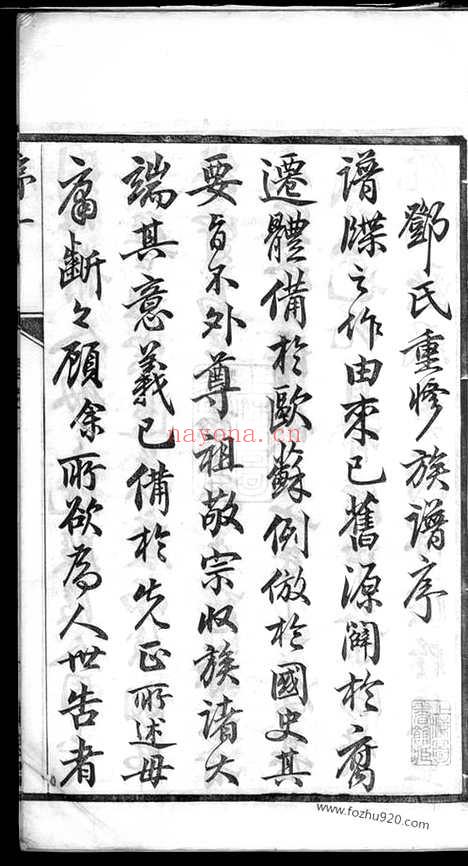 鄧氏重修族譜序
譜牒之作由來已舊源闢於腐
遷體備於歐蘇例倣於國史其
要旨不外尊祖敬宗收族諸大
端其意義已備於先正所述毋
庸齗々顧余所欲為人世告者
序一
nayona.cn
www.fozhu920.com